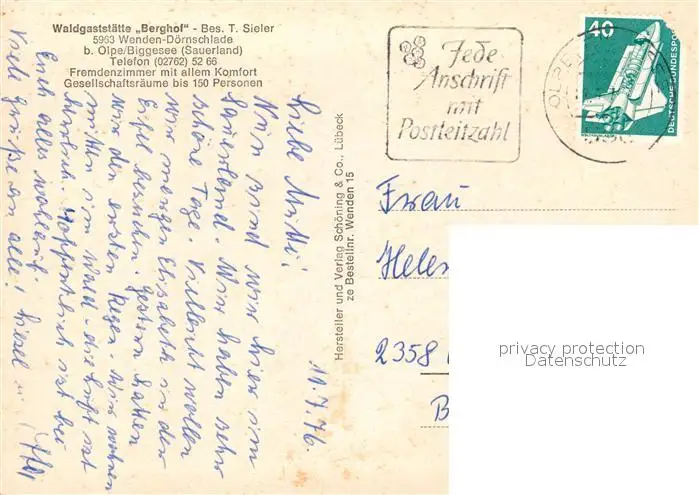 Waldgaststätte „Berghof" - Bes. T. Sieler
5963 Wenden-Dörnschlade
b. Olpe/Biggesee (Sauerland)
Telefon (02762) 52 66
Fremdenzimmer mit allem Komfort
Gesellschaftsräume bis 150 Personen
Jede
Anschrift
mit
Postleitzahl
40
DEUTSCHE BUNDESPOST
11.7.76
Liebe Mutti!
Nun sind wir hier im
Sauerland. Wir haben sehr
schöne Tage. Vielleicht wollen
wir morgen Elisabeth in der
Eifel besuchen. Gestern hatten
wir den ersten Regen. Wir wohnen
mitten im Wald - die Luft ist
herrlich. Hoffentlich ist bei
Euch alles wohlauf.
Viele Grüße an alle!
Hersteller und Verlag Schöning & Co., Lübeck
ze Bestellnr. Wenden 15
Frau
2358
privacy protection
Datenschutz